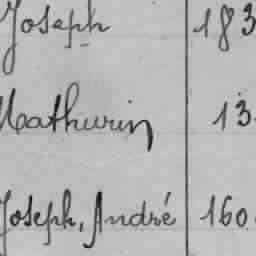 Joseph 183
Mathurin 13
Joseph, André 160